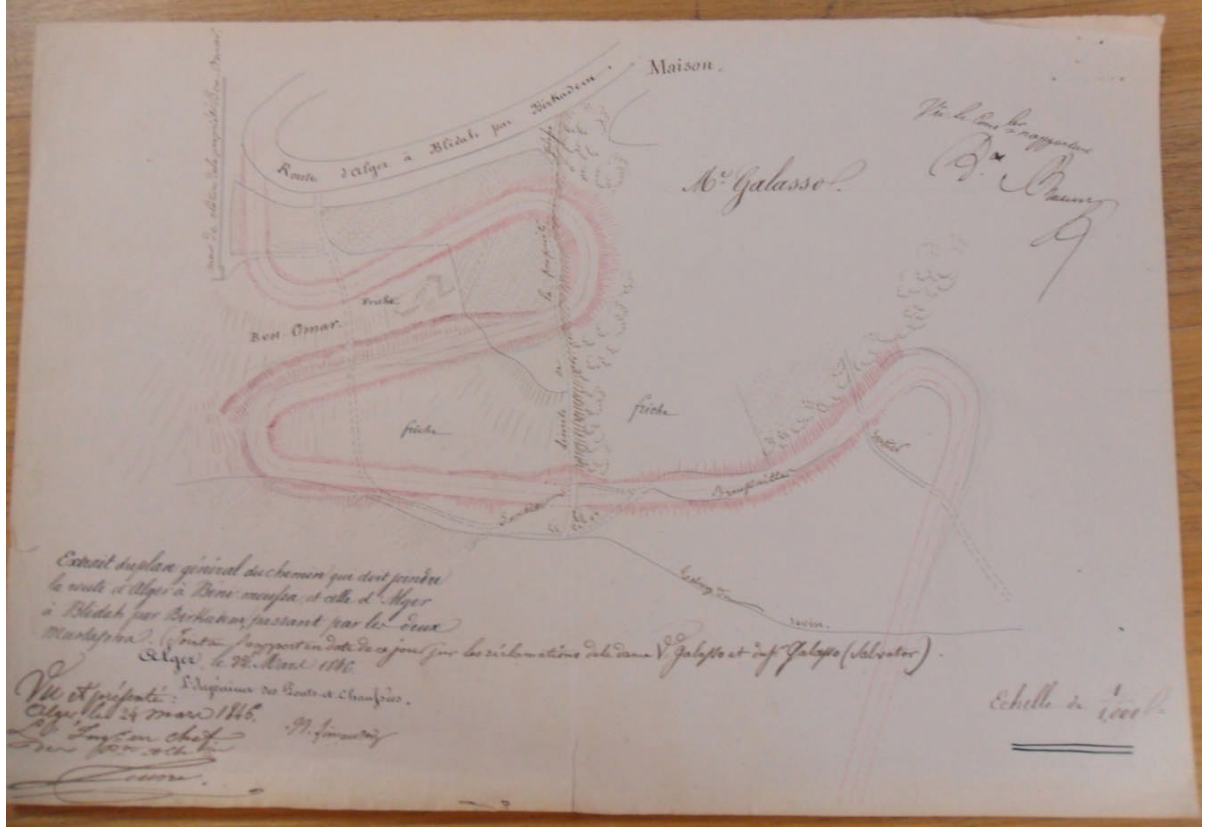 Maison.
Route d'Alger à Blidah par Birkadem.
mur de clôture de la propriété Ben Omar.
Vu le Cons.er rapporteur
Mr Galasso.
friche
Ben Omar.
limite de la propriété
friche
friche
Sentier
Broussailles
Sentier
ravin.
Extrait du plan général du chemin que doit joindre
la route d'Alger à Beni moussa, et celle d'Alger
à Blidah par Birkadem, passant par les deux
Mustapha. (Joint au rapport en date de ce jour sur les réclamations de la dame Ve Galasso et du Sr Galasso (Salvator).
Alger, le 22 Mars 1846.
L'Ingénieur des Ponts-et-Chaussées.
Vu et présenté :
Alger, le 24 mars 1846.
L'Ingr en chef
Echelle de 1/1,000e